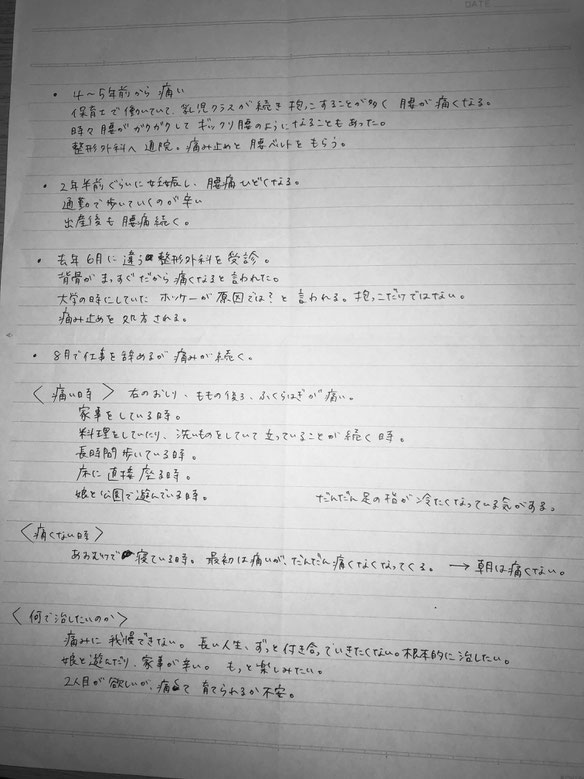 DATE
・ 4〜5年前から 痛い
保育士で働いていて、乳児クラスが続き抱っこすることが多く 腰が痛くなる。
時々腰がガクガクして ギックリ腰のようになることもあった。
整形外科へ通院。痛み止めと腰ベルトをもらう。
・ 2年半前ぐらいに妊娠し、腰痛ひどくなる。
通勤で歩いていくのが辛い
出産後も腰痛続く。
・ 去年6月に違う整形外科を受診。
背骨がまっすぐだから痛くなると言われた。
大学の時にしていた ホッケーが原因では?と 言われる。抱っこだけではない。
痛み止めを処方される。
・ 8月で仕事を辞めるが 痛みが続く。
〈痛い時〉 右のおしり、ももの後ろ、ふくらはぎが痛い。
家事をしている時。
料理をしていたり、洗いものをしていて立っていることが続く時。
長時間歩いている時。
床に直接座る時。
娘と公園で遊んでいる時。 だんだん足の指が冷たくなっている気がする。
〈痛くない時〉
あおむけで寝ている時。最初は痛いが、だんだん痛くなくなってくる。 → 朝は痛くない。
〈何で治したいのか〉
痛みに我慢できない。長い人生、ずっと付き合っていきたくない。根本的に治したい。
娘と遊んだり、家事が辛い。もっと楽しみたい。
2人目が欲しいが、痛くて育てられるか不安。